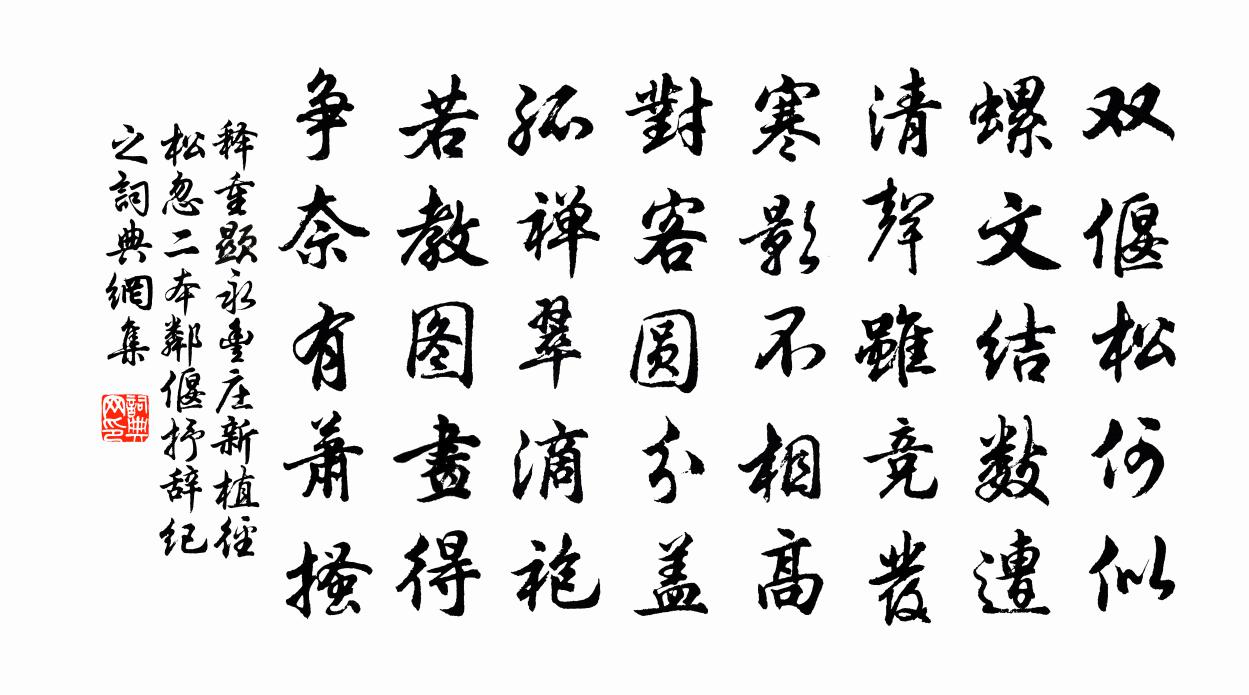 双偃松何似
螺文结数遭
清聲雖竞發
寒影不相高
對客圆分盖
孤禅翠滴袍
若教图畫得
争奈有萧搔
释重顯永豊庄新植徑
松忽二本鄰偃抒辞纪
之詞典網集
詞典
网印